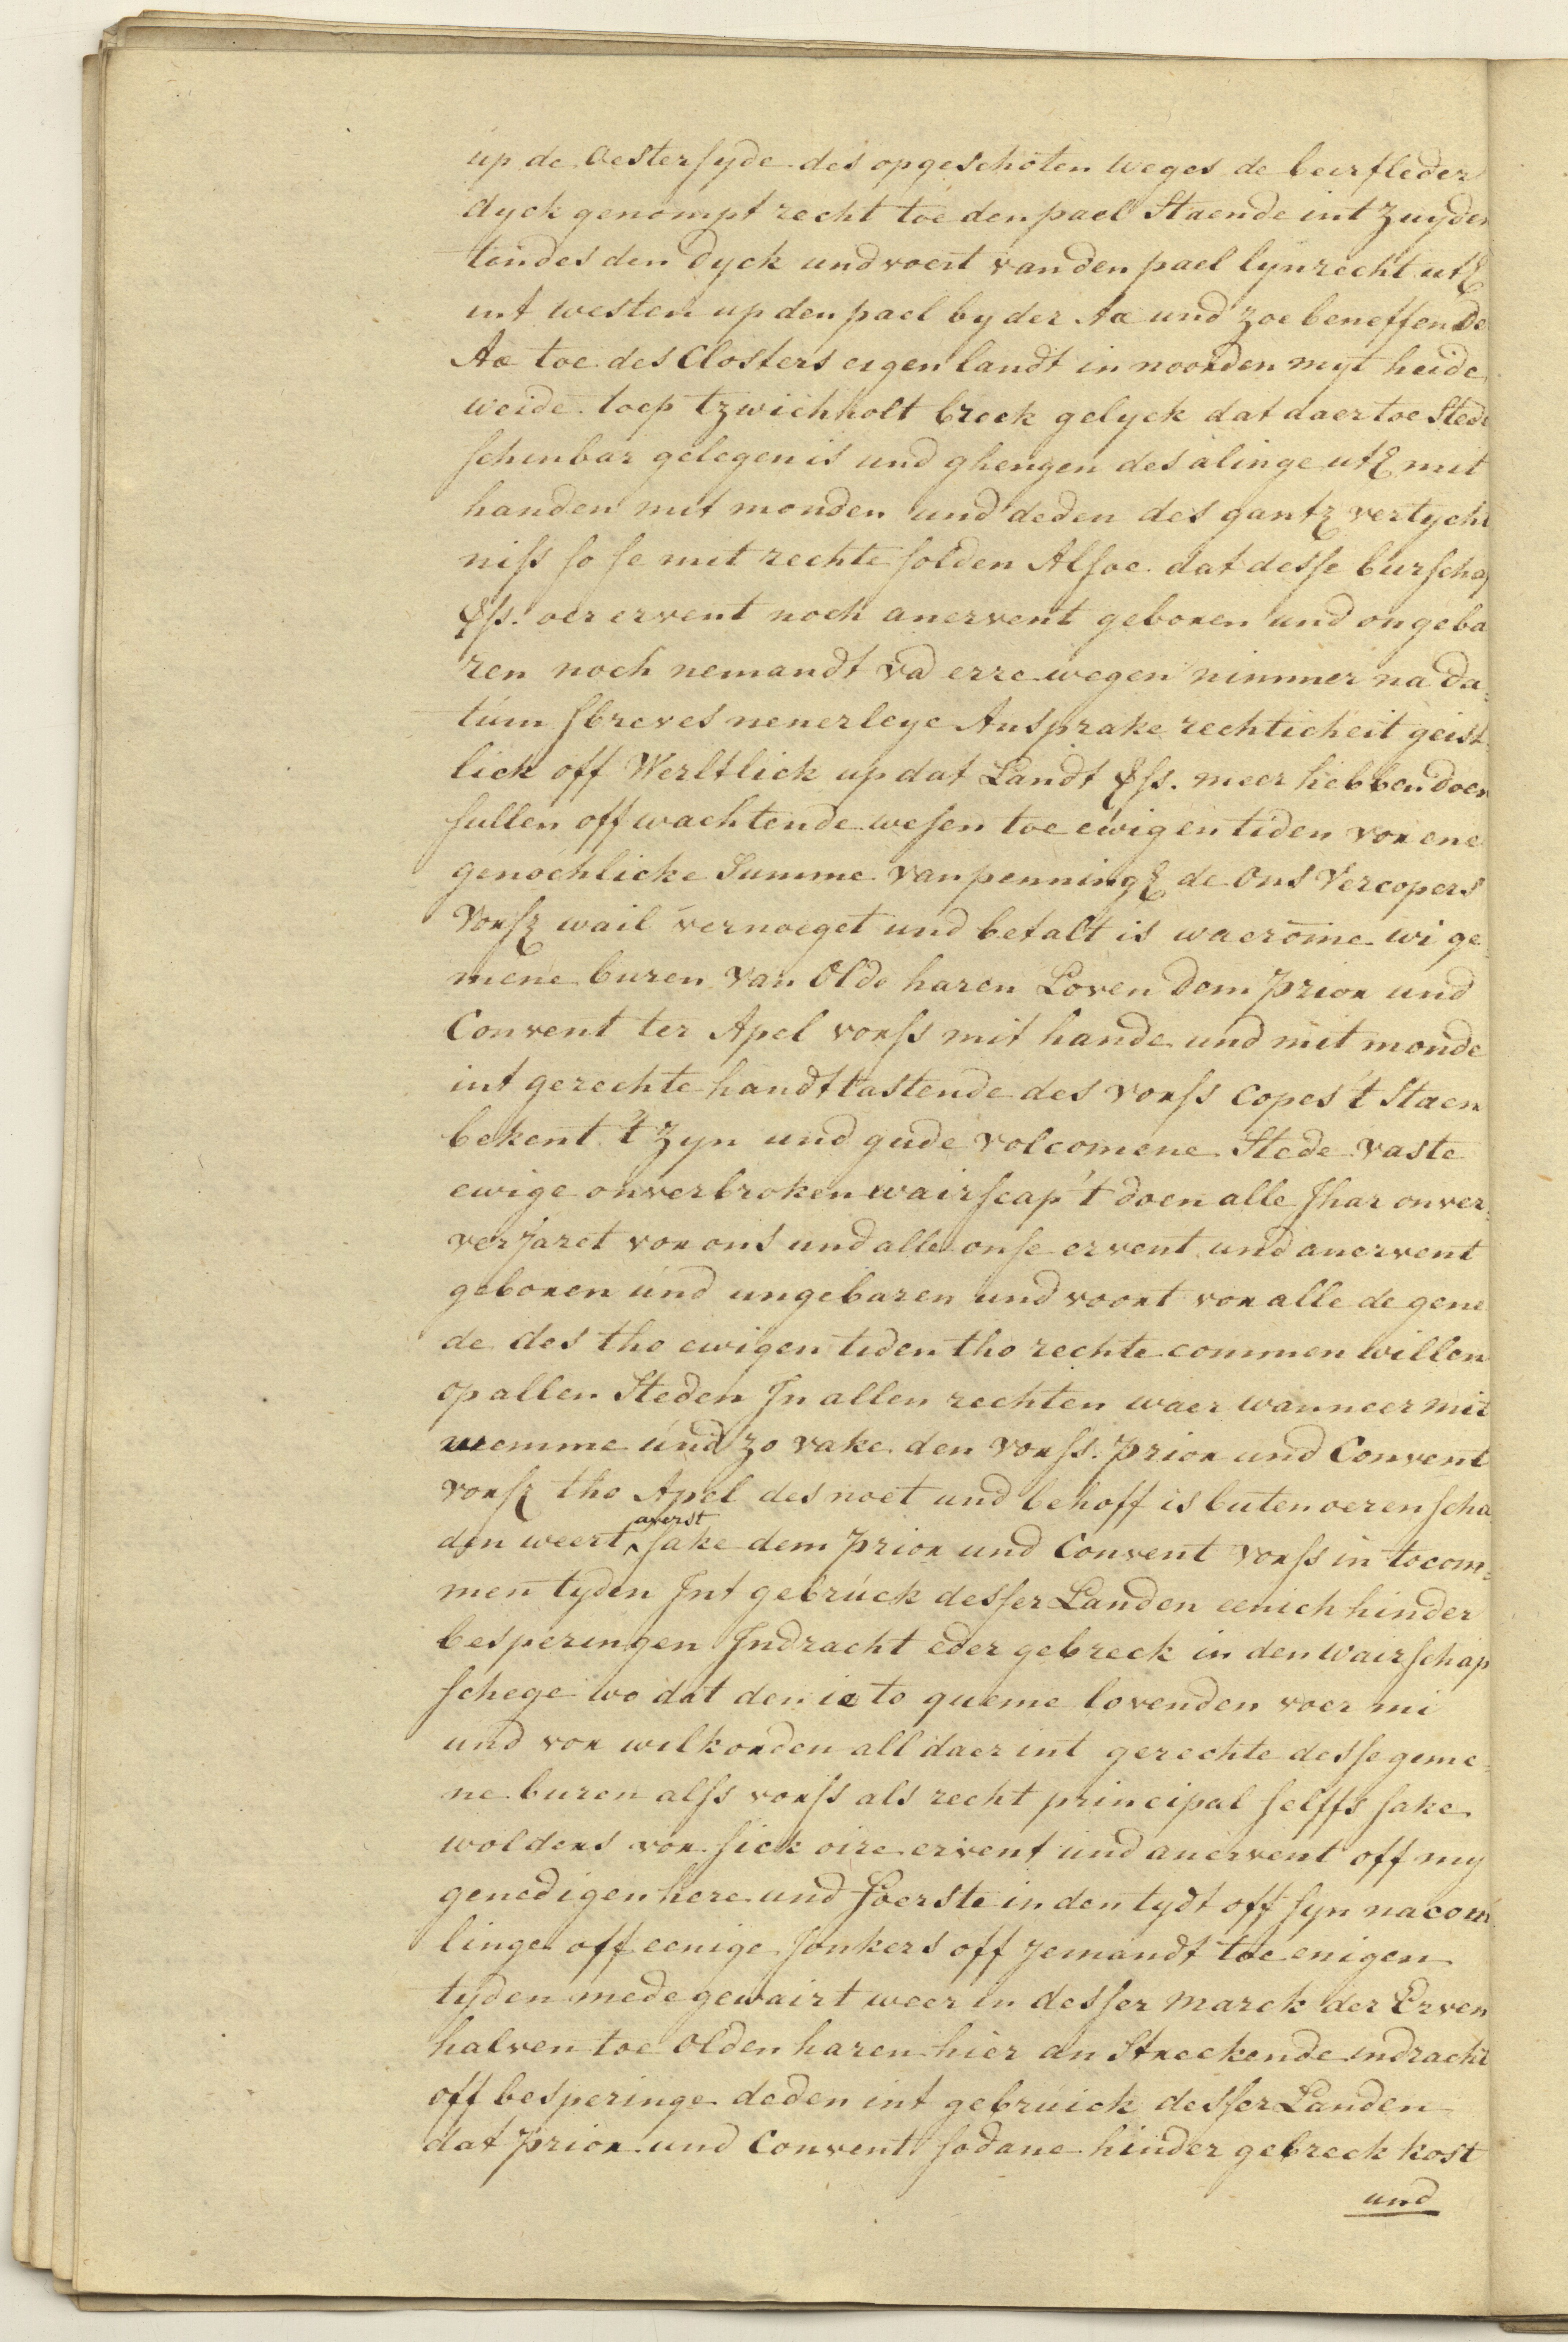 up de Oestersyde des opgeschoten weges de beirfleder
dyck genompt recht toe den pael Staende int Zuyden
tendes den dyck und voert van den pael lynrecht utz
int westen up den pael by der Aa und zoe beneffen de
Aa toe des Closters eigen landt in noorden myt heide
weide toep tzwichholt breck gelyck dat daer toe Stede
schinbar gelegen is und ghengen des alinge utz mit
handen mit monden und deden des gantz vertycht
niss so se mit rechte solden Alsoe dat desse burschap
oer ervent noch anervent geboren und ongeba
ren noch nemandt va erre wegen nimmer na da-
tum sbreves nenerleye Ansprake rechticheit geist-
lick off Werltlick up dat Landt meer hebben doen
sullen off wachtende wesen toe ewigen tiden vor ene
genochlicke Summe van penningz de Ons Vercopers
Vorsz wail vernoeget und betalt is waerome wi ge-
mene buren Van Olde haren Loven Dem Prior und
Convent ter Apel vorss mit hande und mit monde
int gerechte handttastende des vorss copes 't Staen
bekent 't Zyn und gude volcomene Stede vaste
ewige onverbroken wairscap 't doen alle Jhar onver-
verjaret vor ons und alle onse ervent und anervent
geboren und ungebaren und voort vor alle de gene
de des tho ewigen tiden tho rechte commen willen
op allen Steden In allen rechten waer wanneer mit
wemme und zo vake den vorss. Prior und Convent
vorsz tho Apel des noet und behoff is buten oeren scha
den weert averst sake dem Prior und Convent vorss in tocom-
men tyden Int gebruck desser Landen eenich hinder
besperingen Indracht eder gebreck in den wairschap
schege wo dat den ie to queme lovenden voer mi
und vor wilkorden all daer int gerechte desse geme-
ne buren alss vorss als recht principal selffs sake
wolders vor sick oire ervent und anervent off my
genedigen here und Foerste in den tydt off syn nacom
linge off eenige Jonkers off Jemandt toe enigen
tyden mede gewairt weer in desser marck der Erven
halven toe Olden haren hier an Streckende indracht
off besperinge deden int gebruick desser Landen
dat Prior und Convent sodane hinder gebreck kost
und